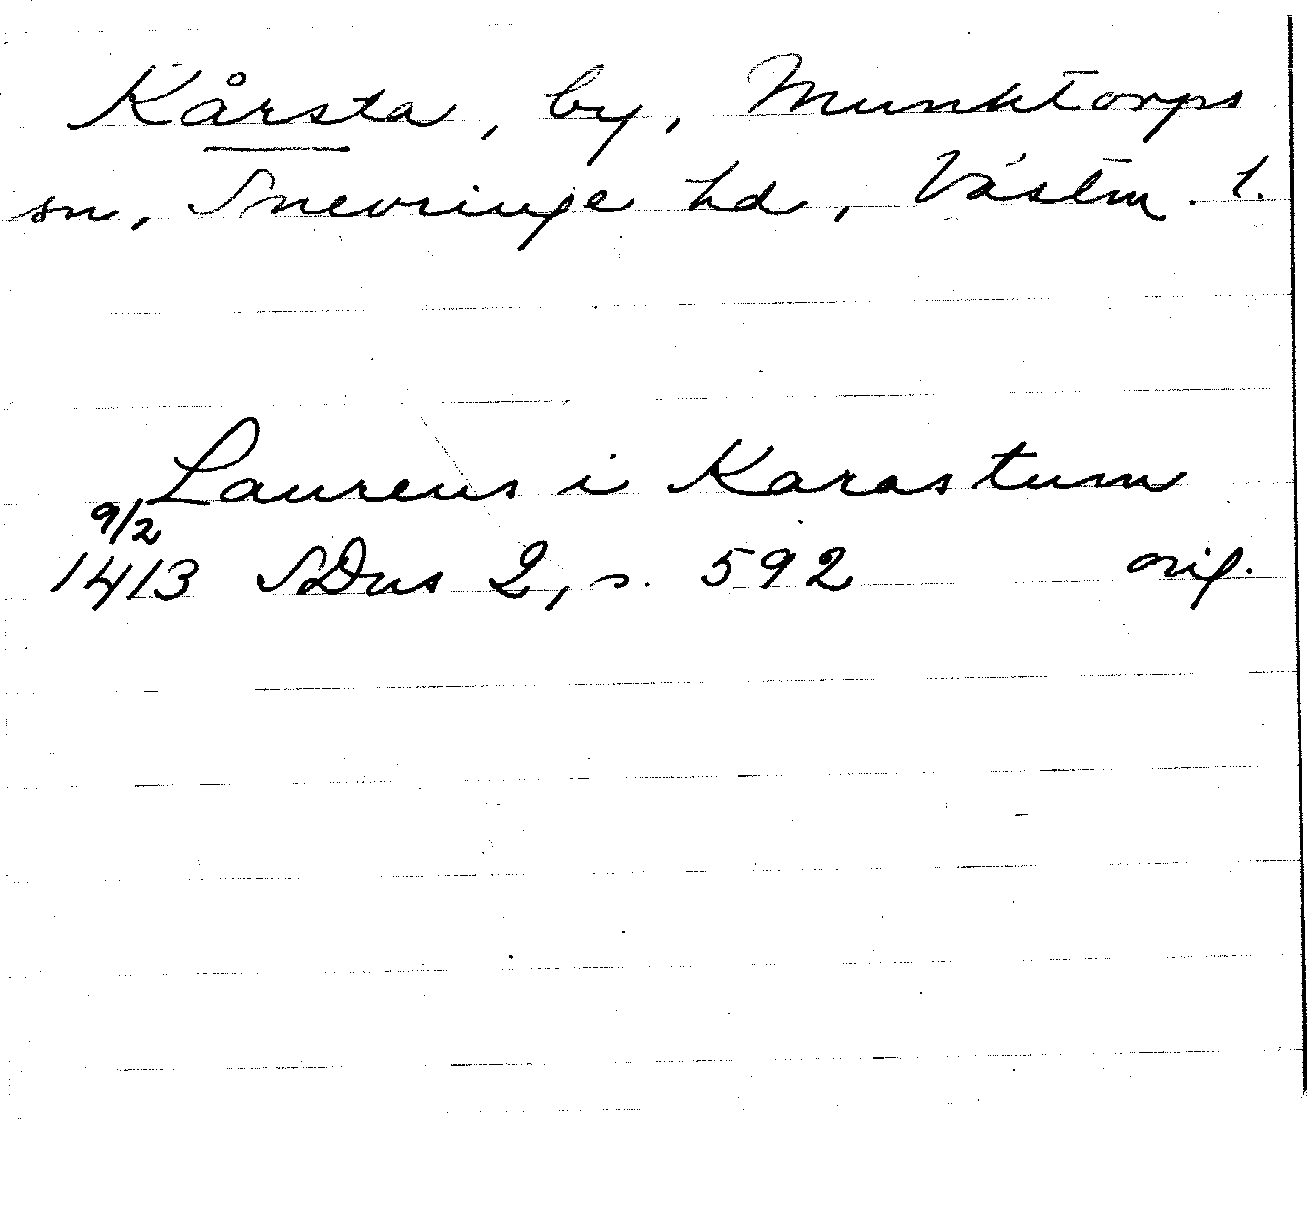 Kårsta, by, Munktorps
sn, Snevringe hd, Västm. l.
Laurens i Karastum
9/2
1413 SDns 2, s. 592 orig.